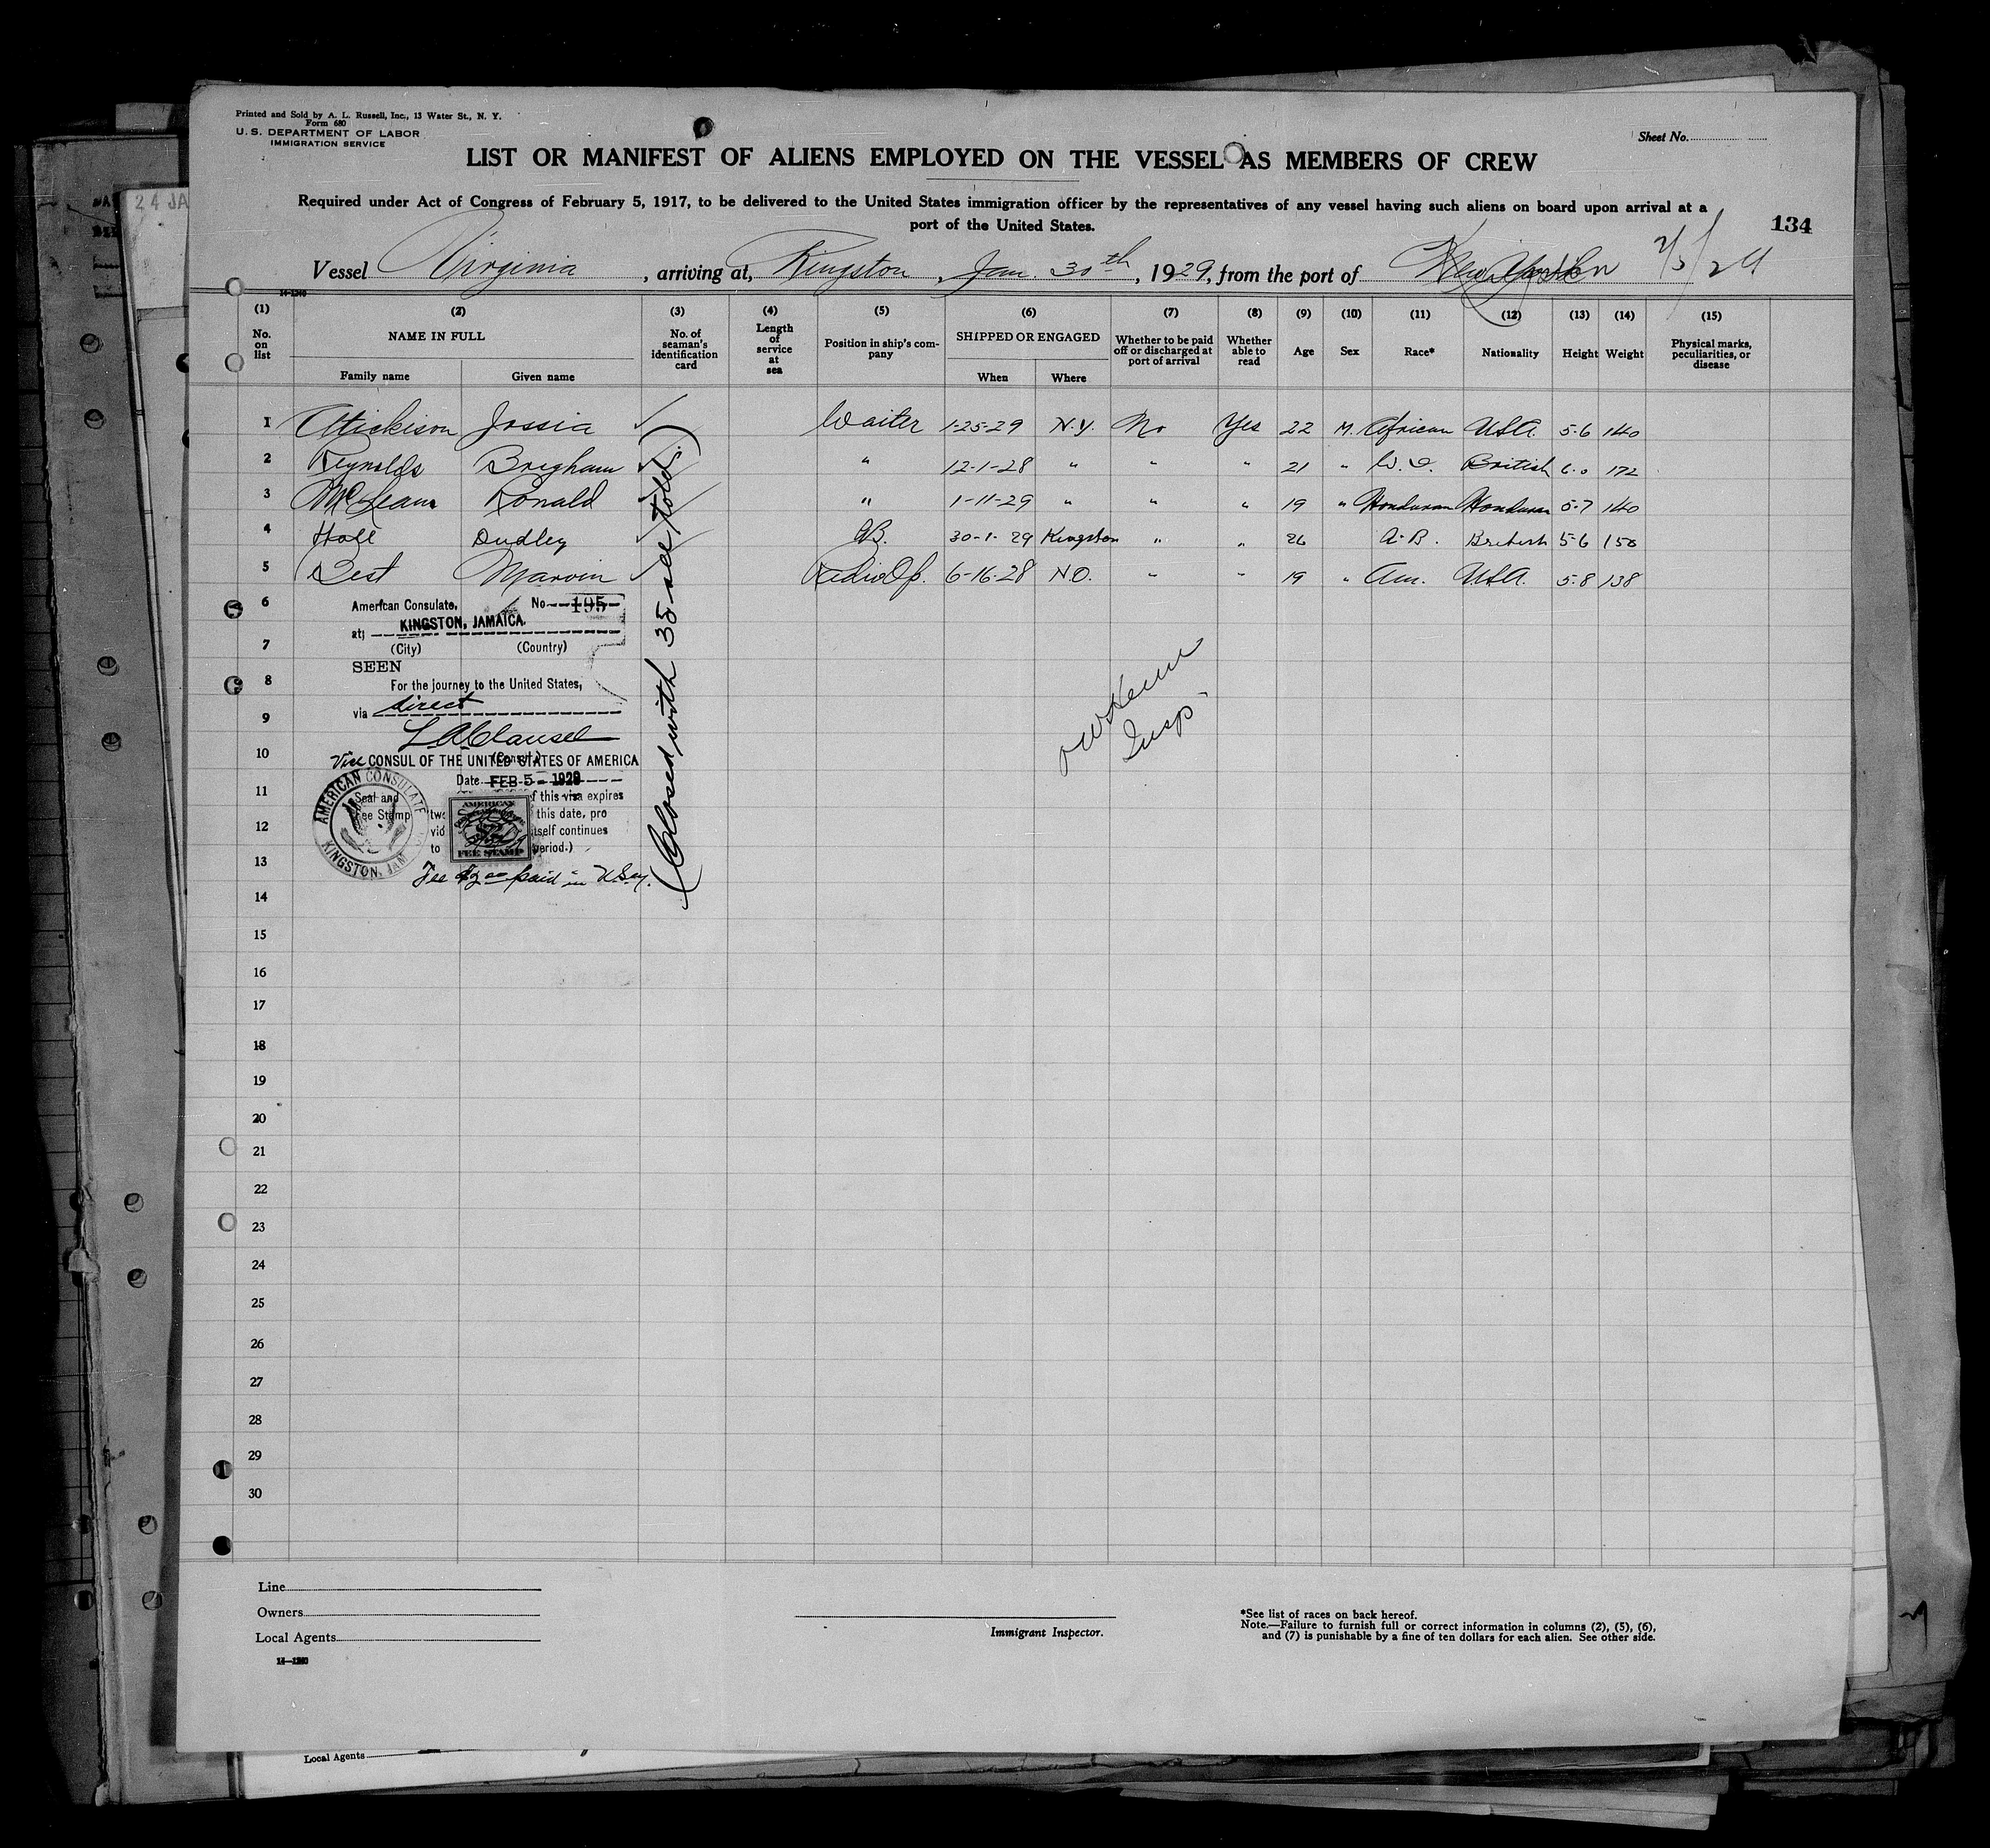 Printed and Sold by A. L. Russell, Inc., 13 Water St., N. Y.
Form 680
U. S. DEPARTMENT OF LABOR
IMMIGRATION SERVICE
Sheet No.
LIST OR MANIFEST OF ALIENS EMPLOYED ON THE VESSEL AS MEMBERS OF CREW
Required under Act of Congress of February 5, 1917, to be delivered to the United States immigration officer by the representatives of any vessel having such aliens on board upon arrival at a
port of the United States.
134
24 JA
Vessel Virginia, arriving at, Kingston, Jan. 30th, 1929, from the port of
14-1240
(1) (2) (3) (4) (5) (6) (7) (8) (9) (10) (11) (12) (13) (14) (15)
No. on list NAME IN FULL No. of seaman's identification card Length of service at sea Position in ship's company SHIPPED OR ENGAGED Whether to be paid off or discharged at port of arrival Whether able to read Age Sex Race* Nationality Height Weight Physical marks, peculiarities, or disease
Family name Given name When Where
1 Jossia Waiter 1-25-29 N.Y. No Yes 22 M. African USA. 5-6 140
2 Reynolds Brigham " 12-1-28 " " " 21 " W.I. British 6.0 172
3 McLean Ronald " 1-11-29 " " " 19 " Honduran Honduran 5-7 140
4 Hall Dudley AB. 30-1-29 Kingston " " 26 A.B. British 5-6 150
5 Best Marvin Radio Op. 6-16-28 N.O. " " 19 " Am. USA. 5-8 138
6
7
8
9
10
11
12
13
14
15
16
17
18
19
20
21
22
23
24
25
26
27
28
29
30
American Consulate, No 195
at; KINGSTON, JAMAICA.
(City) (Country)
SEEN
For the journey to the United States,
via direct
Vice CONSUL OF THE UNITED STATES OF AMERICA
(Consul)
Date FEB 5 - 1929
f this visa expires
Seal and
Fee Stamp
this date, pro
vid itself continues
to period.)
AMERICAN CONSULATE
KINGSTON, JAM
AMERICAN
FEE STAMP
Fee $2.00 paid in
(Closed with 35 all told.)
Insp.
Line
Owners
Local Agents
14-1240
Immigrant Inspector.
*See list of races on back hereof.
Note.—Failure to furnish full or correct information in columns (2), (5), (6),
and (7) is punishable by a fine of ten dollars for each alien. See other side.
Local Agents